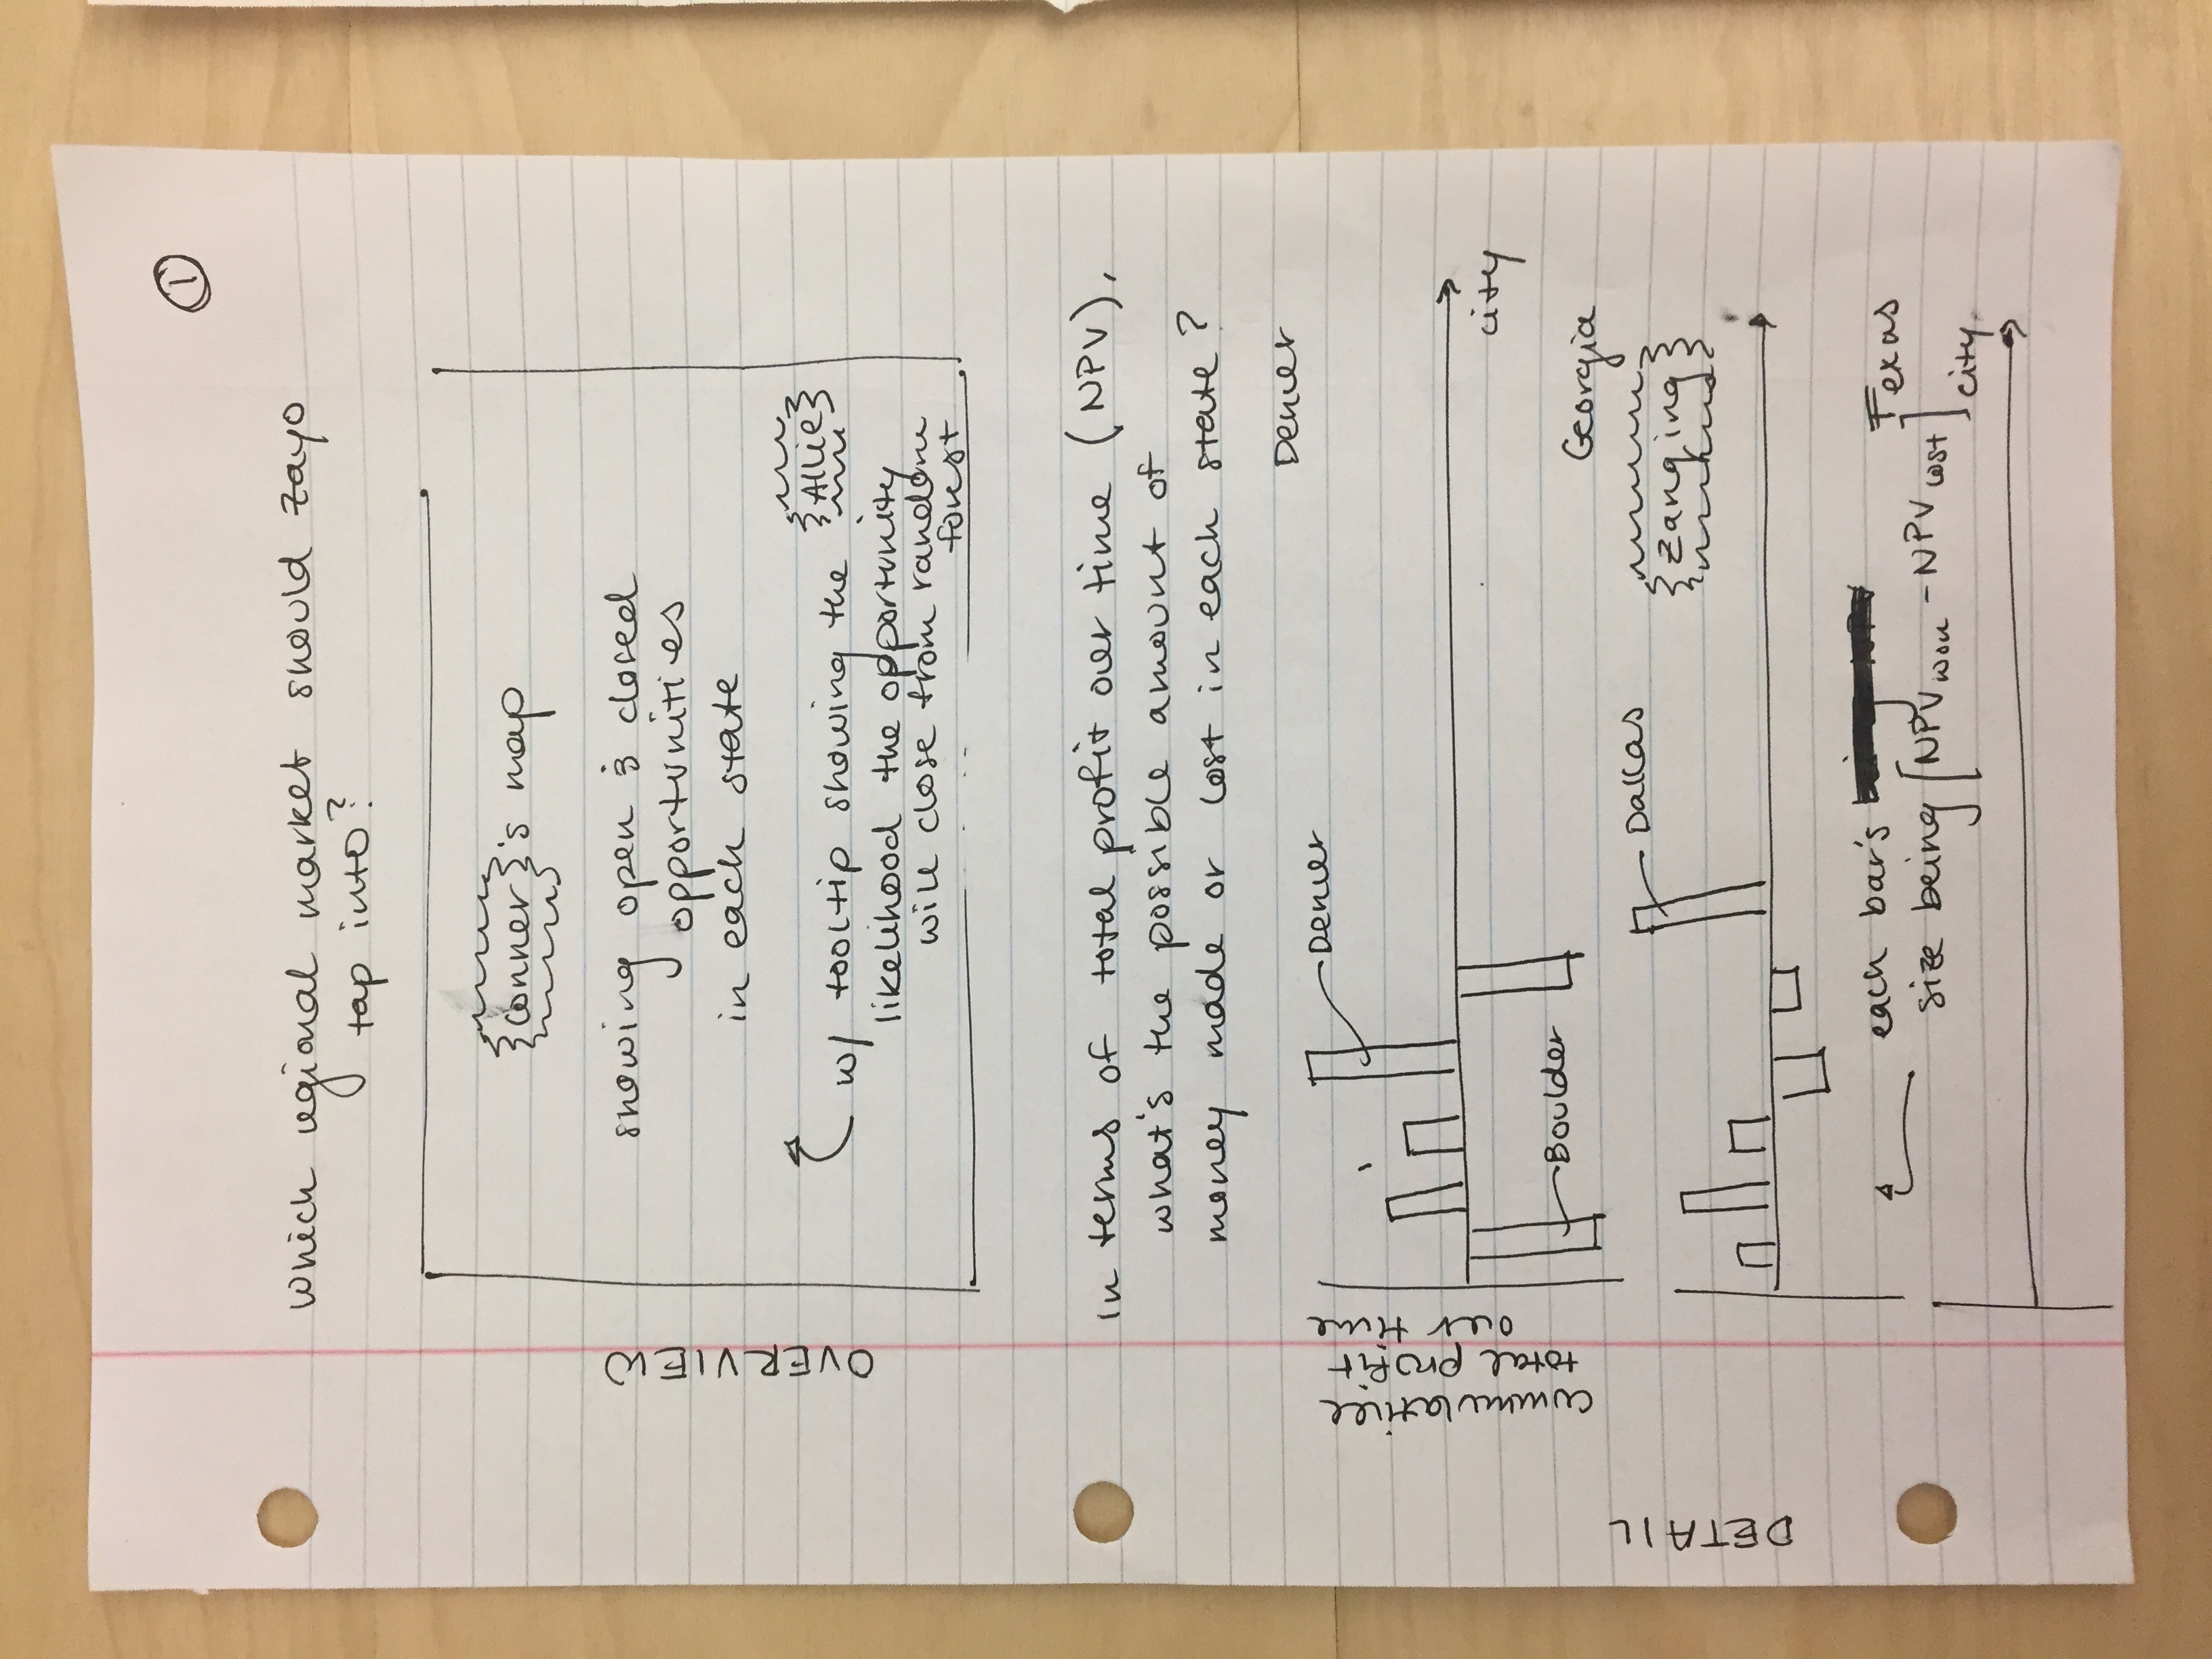 1
which regional market should zayo
tap into?
OVERVIEW
Conner's map
showing open & closed
opportunities
in each state
Allie
w/ tooltip showing the
likelihood the opportunity
will close from random
forest
in terms of total profit over time (NPV),
what's the possible amount of
money made or lost in each state?
Denver
Denver
cummulative
total profit
over time
city
Boulder
Georgia
DETAIL
Dallas
Zanqing
each bar's being NPV
Texas
size being [NPV won - NPV lost] city.